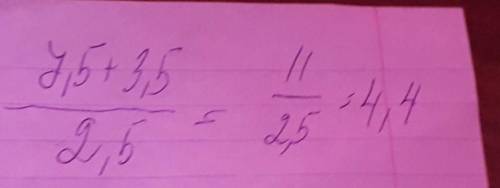 (7,5+3,5)/2,5 = 11/2,5 = 4,4